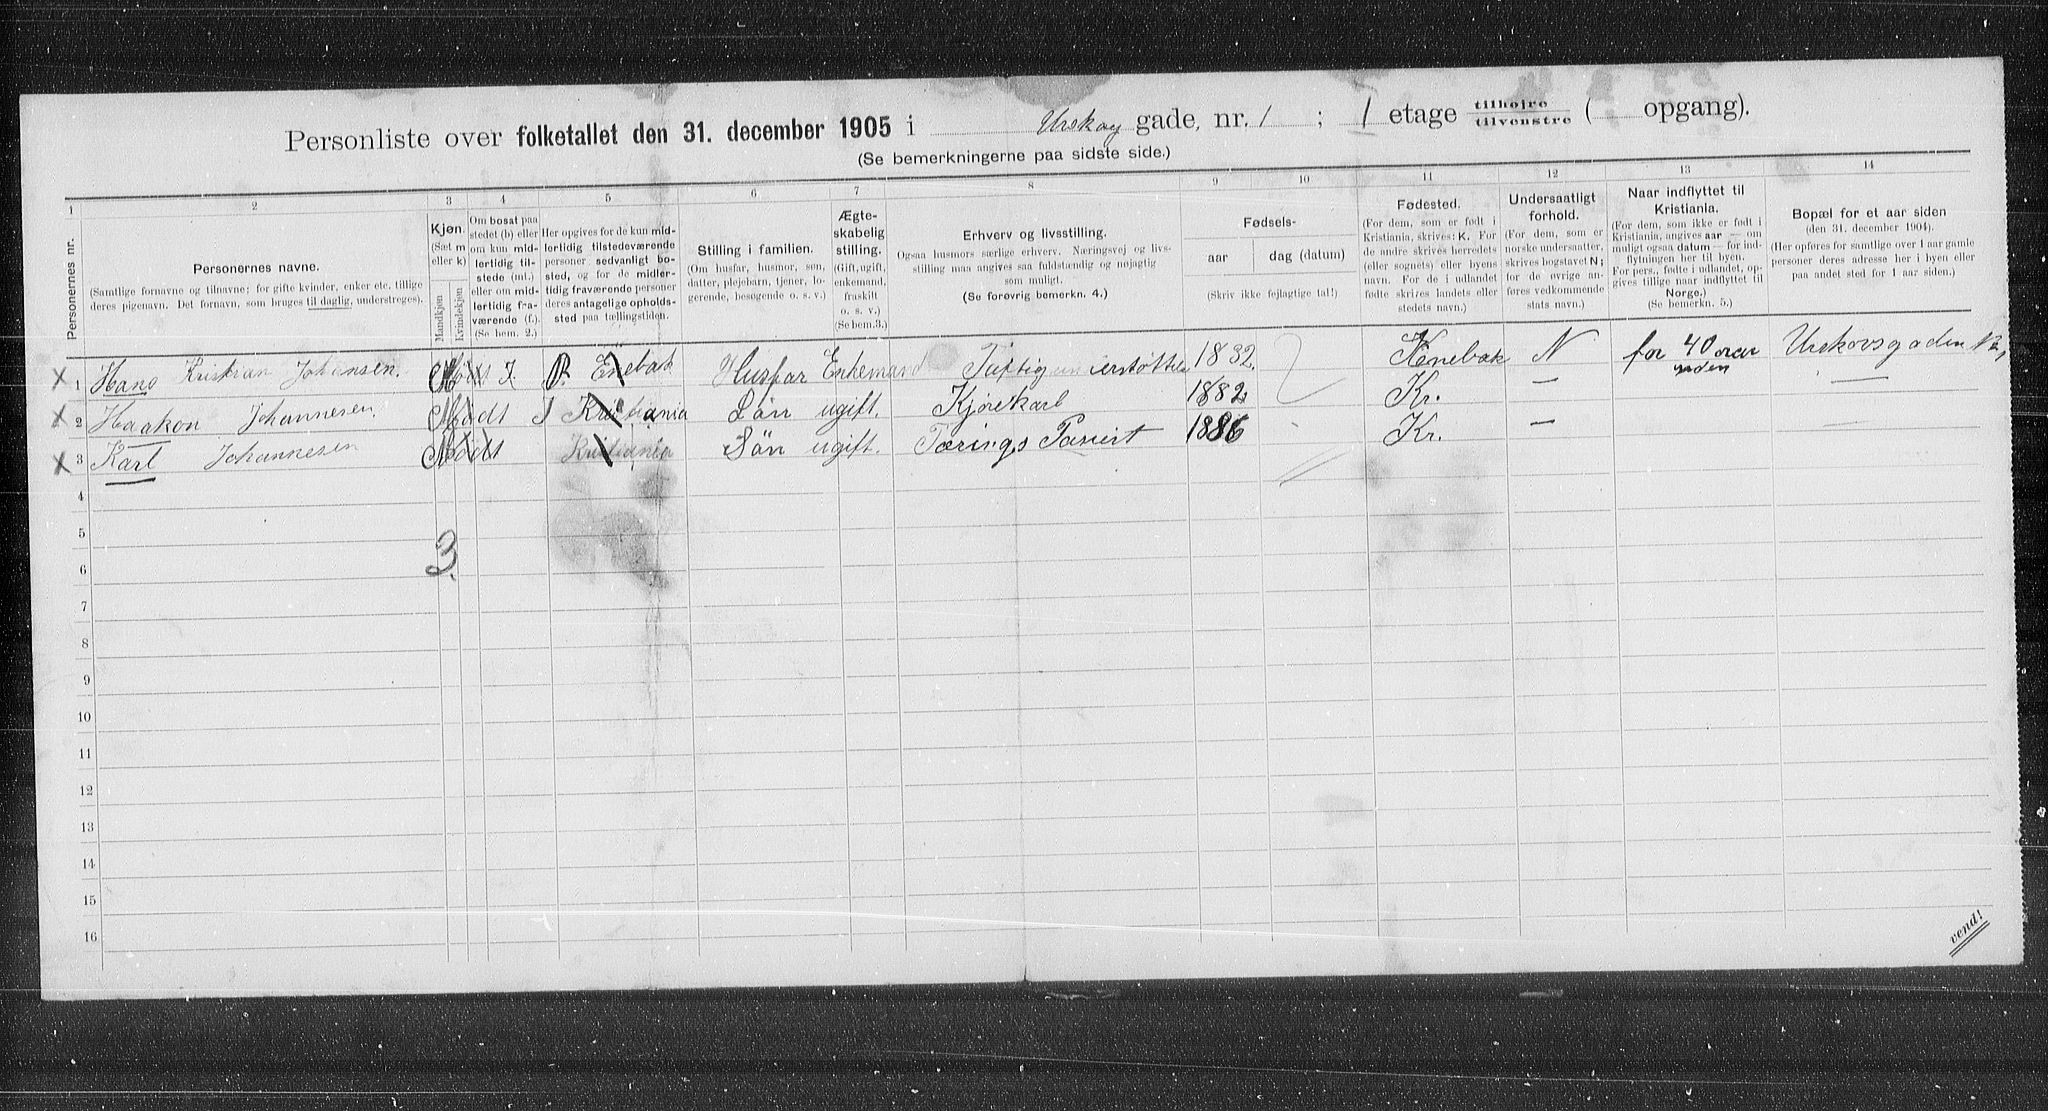 Personliste over folketallet den 31. december 1905 i Urskog gade, nr. 1 ; 1 etage tilhøjre tilvenstre ( opgang).
(Se bemerkningerne paa sidste side.)
1 2 3 4 5 6 7 8 9 10 11 12 13 14
Personernes nr.
Personernes navne.
(Samtlige fornavne og tilnavne; for gifte kvinder, enker etc. tillige
deres pigenavn. Det fornavn, som bruges til daglig, understreges).
Kjøn.
(Sæt m
eller k)
Mandkjøn
Kvindekjøn
Om bosat paa
stedet (b) eller
om kun mid-
lertidig til-
stede (mt.)
eller om mid-
lertidig fra-
værende (f.).
(Se bem. 2.)
Her opgives for de kun mid-
lertidig tilstedeværende
personer sedvanligt bo-
sted, og for de midler-
tidig fraværende personer
deres antagelige opholds-
sted paa tællingstiden.
Stilling i familien.
(Om husfar, husmor, søn,
datter, plejebarn, tjener, lo-
gerende, besøgende o. s. v.)
Ægte-
skabelig
stilling.
(Gift, ugift,
enkemand,
fraskilt
o. s. v.)
(Se bem.3.)
Erhverv og livsstilling.
Ogsaa husmors særlige erhverv. Næringsvej og livs-
stilling maa angives saa fuldstændig og nøjagtig
som muligt.
(Se forøvrig bemerkn. 4.)
Fødsels-
aar
dag (datum)
(Skriv ikke fejlagtige tal!)
Fødested.
(For dem, som er født i
Kristiania, skrives: K. For
de andre skrives herredets
(eller sognets) eller byens
navn. For de i udlandet
fødte skrives landets eller
stedets navn.)
Undersaatligt
forhold.
(For dem, som er
norske undersaatter,
skrives bogstavet N;
for de øvrige an-
føres vedkommende
stats navn.)
Naar indflyttet til
Kristiania.
(For dem, som ikke er født i
Kristiania, angives aar — om
muligt ogsaa datum — for ind-
flytningen her til byen.
For pers., fødte i udlandet, op-
gives tillige naar indflyttet til
Norge.)
(Se bemerkn. 5.)
Bopæl for et aar siden
(den 31. december 1904).
(Her opføres for samtlige over 1 aar gamle
personer deres adresse her i byen eller
paa andet sted for 1 aar siden.)
X 1 Hans Kristian Johansen. P. Enebak Husfar Enkemand 1832. Enebak N for 40 aar siden Urskovsgaden 12,
X 2 Haakon Johannesen Kristiania Sön ugift. Kjörekarl 1882 Kr. —
X 3 Karl Johannesen Kristiania Sön ugift. Tærings 1886 Kr. —
4
5
3.
6
7
8
9
10
11
12
13
14
15
16
vend!